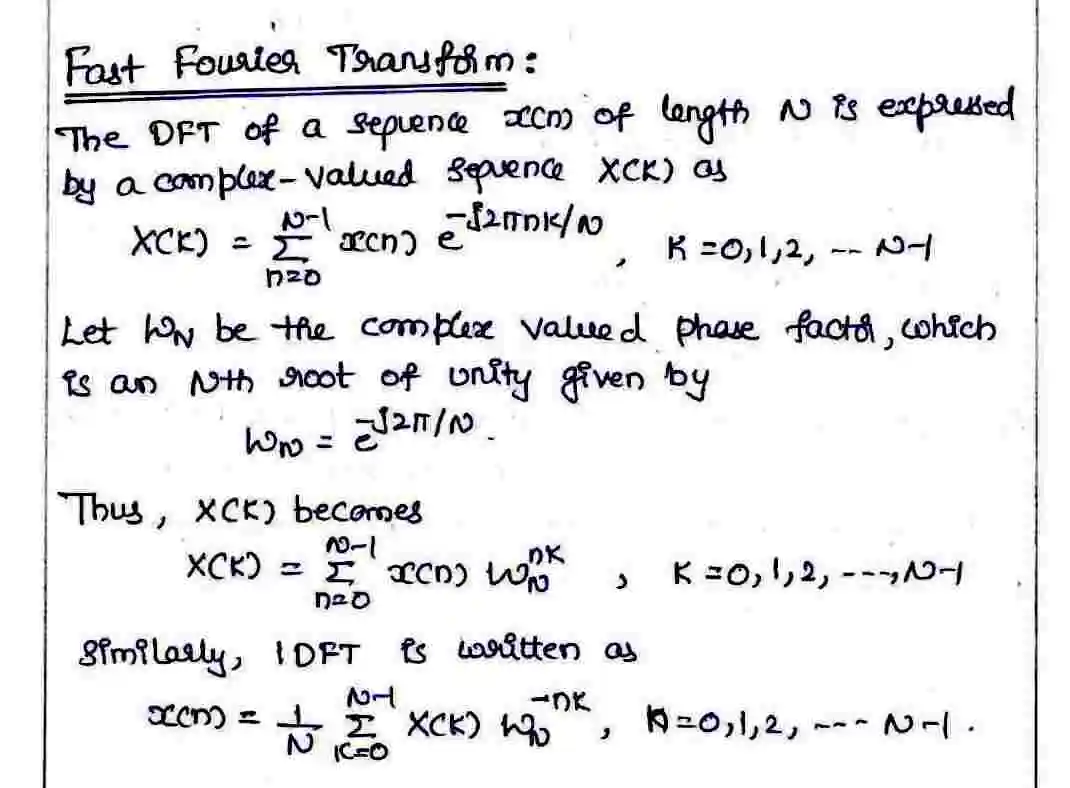 Fast Fourier Transform:
The DFT of a sequence x(n) of length N is expressed
by a complex-valued sequence X(K) as
X(K) = Σ_{n=0}^{N-1} x(n) e^{-j2πnK/N}, K=0,1,2, -- N-1
Let W_N be the complex valued phase factor, which
is an Nth root of unity given by
W_N = e^{-j2π/N}.
Thus, X(K) becomes
X(K) = Σ_{n=0}^{N-1} x(n) W_N^{nK}, K=0,1,2, ---, N-1
Similarly, IDFT is written as
x(n) = 1/N Σ_{K=0}^{N-1} X(K) W_N^{-nK}, n=0,1,2, ---- N-1.